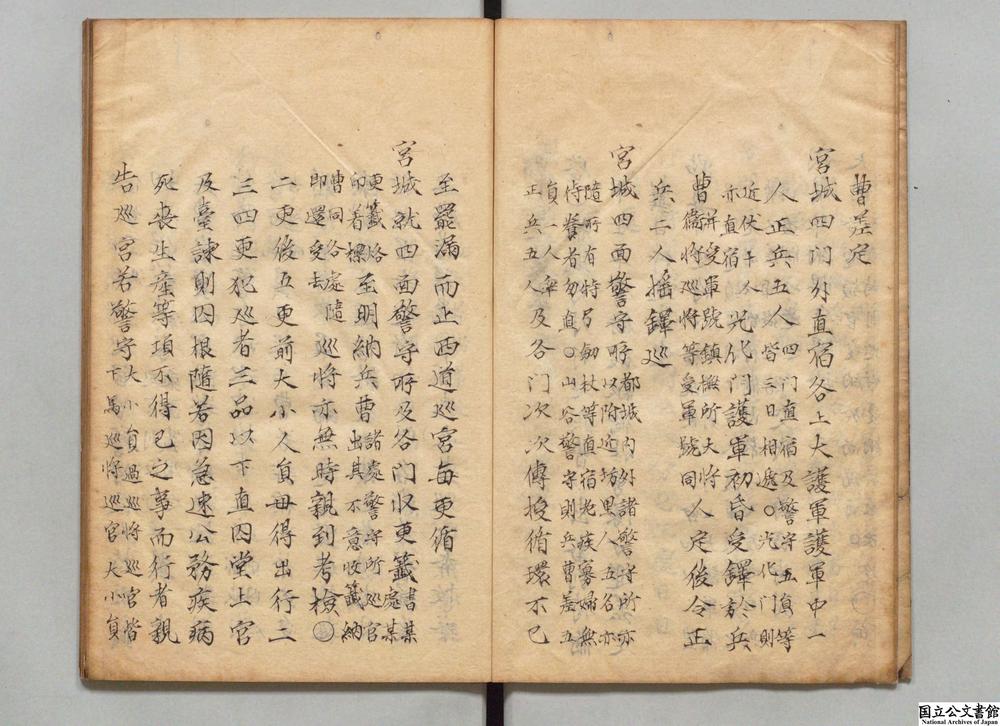 曹差定
宮城四門外直宿各上大護軍護軍中一
人正兵五人四門直宿及警守五員等
皆三日相遞〇光化門則
近伏千人
亦直宿光化門護軍初昏受鐸於兵
曹屛受軍號鎭撫所大將
衛將巡將等受軍號同人定後令正
兵二人搖鐸巡
宮城四面警守所都城內外諸警守所亦
以附近坊里人五名亦
隨所有特弓劒杖等直宿老疾寡婦無
侍養者勿直〇山谷警守則兵曹差五
員一人率
正兵五人及各門次次傳授循環不已
至罷漏而止西道巡宮每更循
宮城就四面警守所及各門收更籤書某
處某
更籤烙
印着標至明納兵曹諸處警守所巡官
出其不意收籤納
曹同各處隨
即還受去巡將亦無時親到考檢〇
二更後五更前大小人員毋得出行二
三四更犯巡者三品以下直囚堂上官
及臺諫則囚根隨若因急速公務疾病
死喪生産等項不得已之事而行者親
告巡宮若警守大小員過巡將巡官皆
下馬巡將巡官大小員
国立公文書館
National Archives of Japan